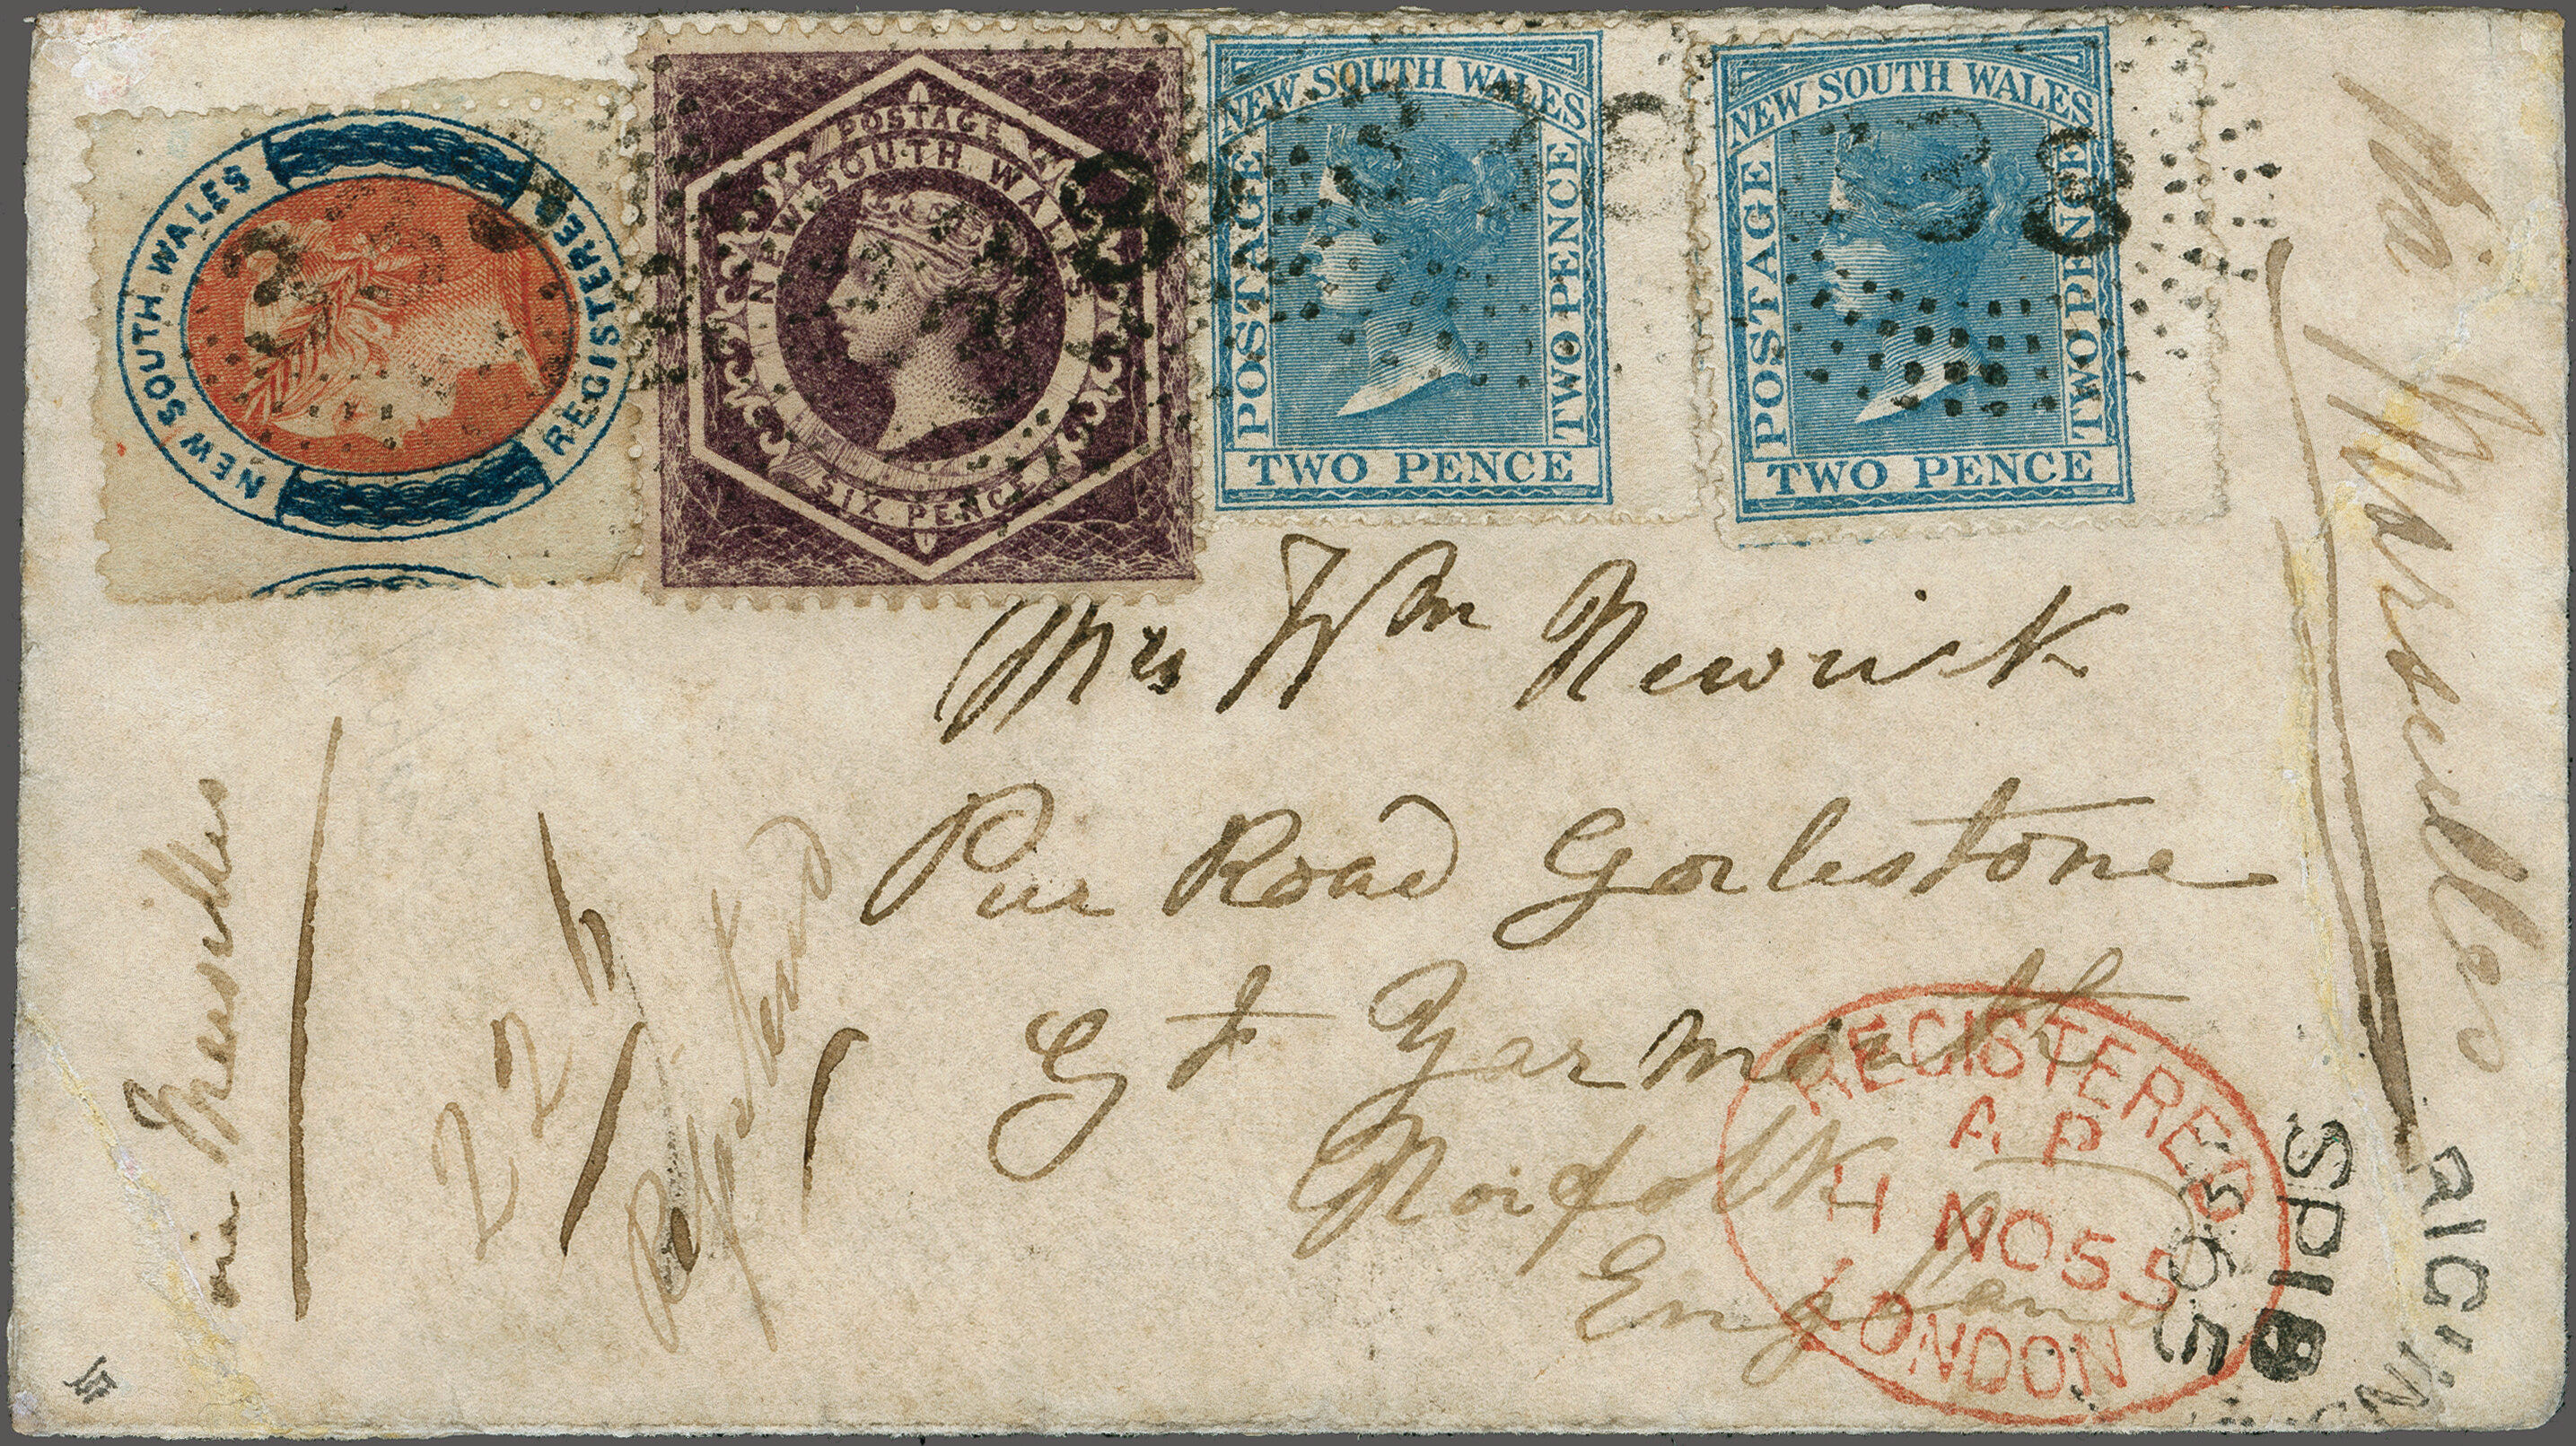 NEW SOUTH WALES
REGISTERED
POSTAGE
NEW SOUTH WALES
SIX PENCE
NEW SOUTH WALES
POSTAGE
TWO PENCE
TWO PENCE
NEW SOUTH WALES
POSTAGE
TWO PENCE
TWO PENCE
via Marseilles
Mrs Wm Newrick
Pier Road Gorlestone
Gt Yarmouth
Norfolk
England
via Marseilles
22
Registered
REGISTERED
A P
4 NO 65
LONDON
SP 18